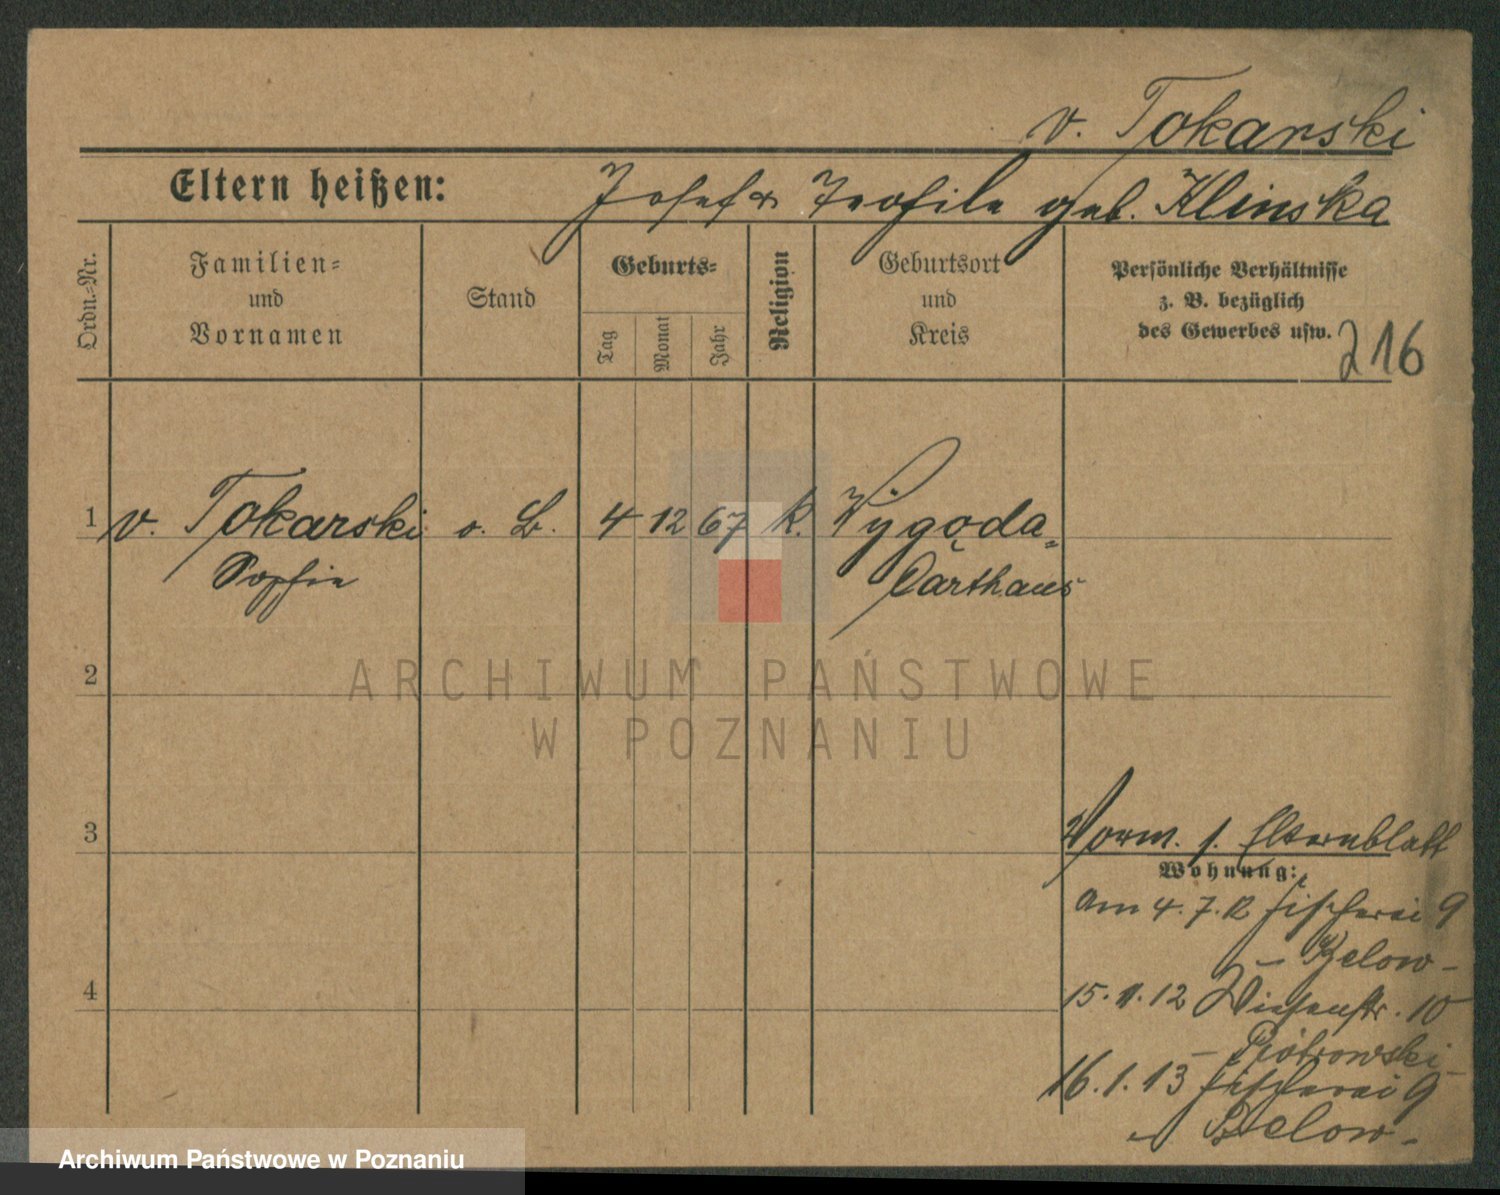 v. Tokarski
Eltern heißen: Josef u. Teofile geb. Klinska
Ordn.-Nr.
Familien-
und
Vornamen
Stand
Geburts-
Tag
Monat
Jahr
Religion
Geburtsort
und
Kreis
Persönliche Verhältnisse
z. B. bezüglich
des Gewerbes usw.
216
1 v. Tokarski o. B. 4 12 67 k. Wygoda-
Sophie Carthaus
2
ARCHIWUM PAŃSTWOWE
W POZNANIU
3
Vorm. s. Elternblatt
Wohnung:
am 4.7.12 Fischerei 9
- Below -
4
15.11.12 Wiesenstr. 10
- Piotrowski -
16.1.13 Fischerei 9
- Below -
Archiwum Państwowe w Poznaniu